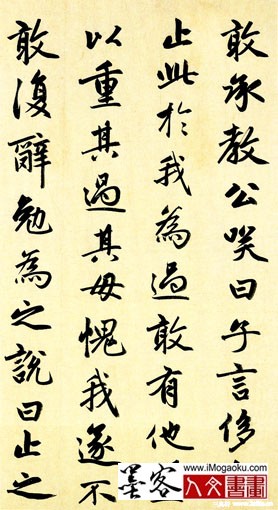 敢承教公咲曰子言侈
止此於我為過敢有他
以重其過其毋愧我遂不
敢復辭勉為之說曰止之
www.iMogaoku.com
墨客 人文書畫